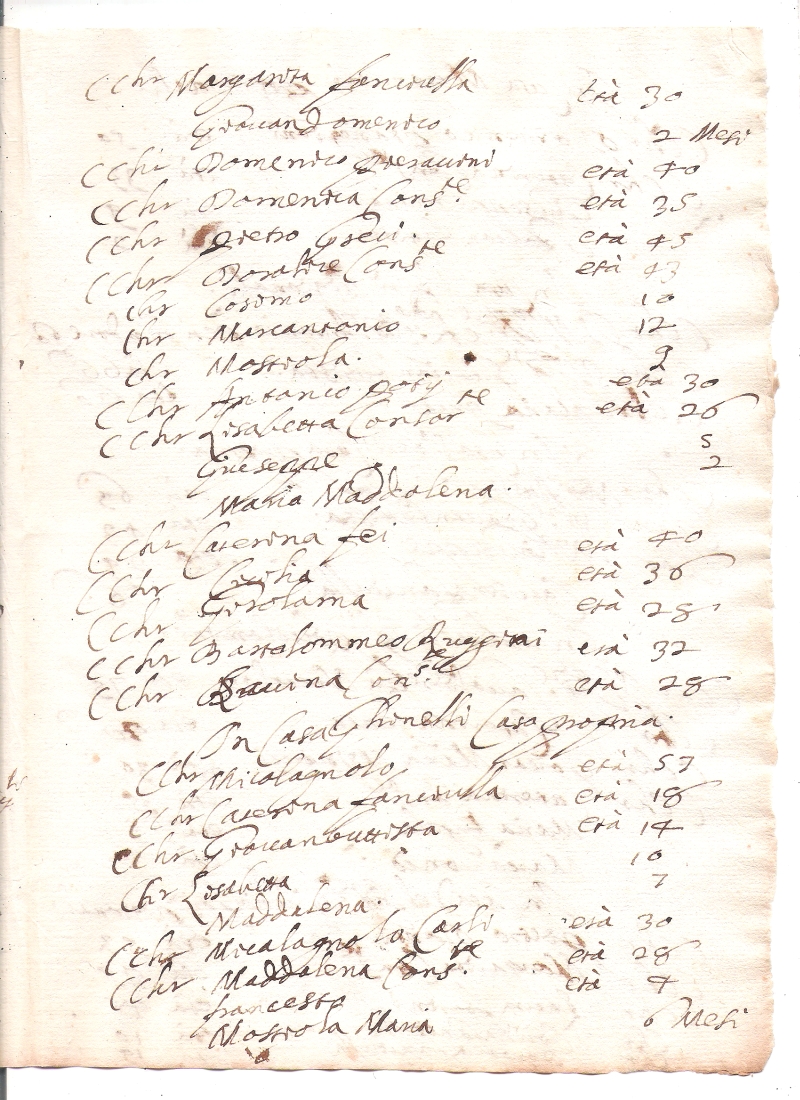 CChr Margarita fanciulla età 30
Giovandomenico 2 Mesi
CChr Domenico età 40
CChr Domenica Cons.te età 35
CChr Pietro Greci. età 45
CChr Cons.te età 43
Chr Cosimo 10
Chr Marcantonio 12
Chr Mostiola. 9
CChr Antonio età 30
CChr Lisabetta Consorte età 26
Giuseppe 5
Maria Maddalena. 2
CChr Caterina fei età 40
CChr Cicilia età 36
CChr Girolama età 28
CChr Bartolommeo Ruggini età 32
CChr Savina Cons.te età 28
In Casa Ghinelli Casa propria.
CChr Micalagnolo età 57
CChr Caterina fanciulla età 18
CChr Giovanbattista età 14
Chr Lisabetta 10
Maddalena. 7
CChr Micalagnolo Carli età 30
CChr Maddalena Cons.te età 28
francesco età 4
Mostiola Maria 6 Mesi